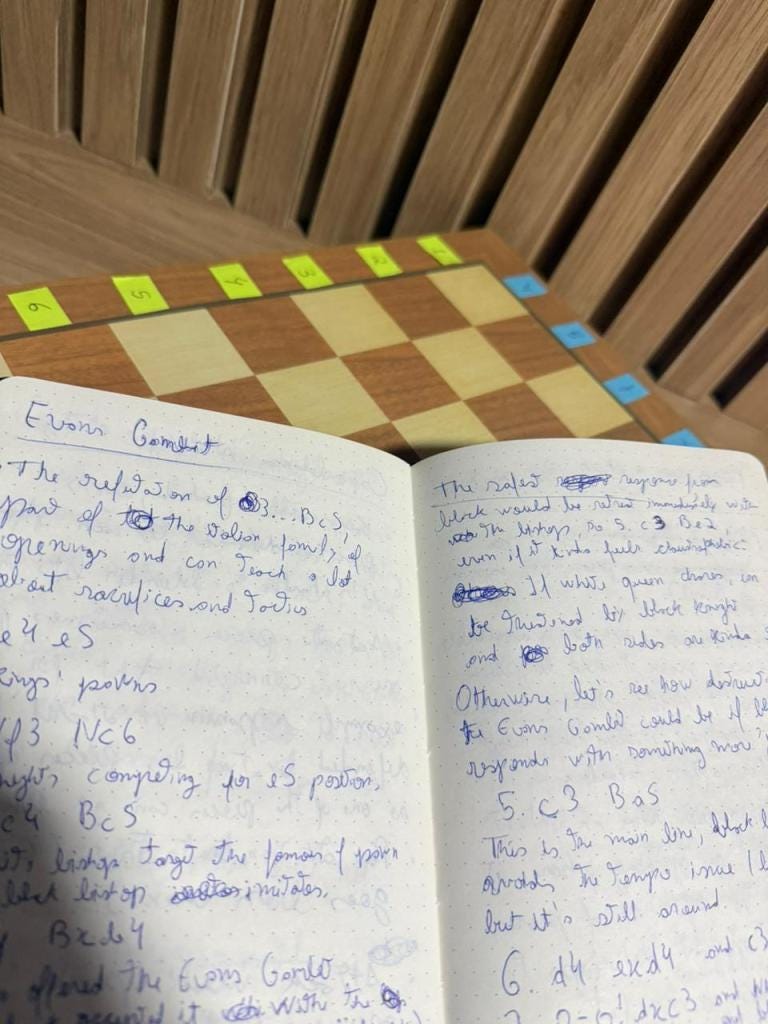 6 5 4 3 2 1
Evans Gambit
The refutation of 3... Bc5,
part of the Italian family of
openings and can teach a lot
about sacrifices and tactics
e4 e5
kings' pawns
f3 Nc6
knights competing for e5 position,
c4 Bc5
bishop target the famous f pawn
black bishop imitates.
Bxb4
offered the Evans Gambit
accepted it with the
The safest response from
black would be retreat immediately with
the bishop, so 5. c3 Be7,
even if it kinda feels claustrophobic.
If white queen chores, can
be threatened by black knight
and both sides are kinda
Otherwise, let's see how destruct
the Evans Gambit could be if bl
responds with something more
5. c3 Ba5
This is the main line, black b
avoids the tempo issue
but it's still around.
6. d4 exd4 and c3
7. 0-0! dxc3 and